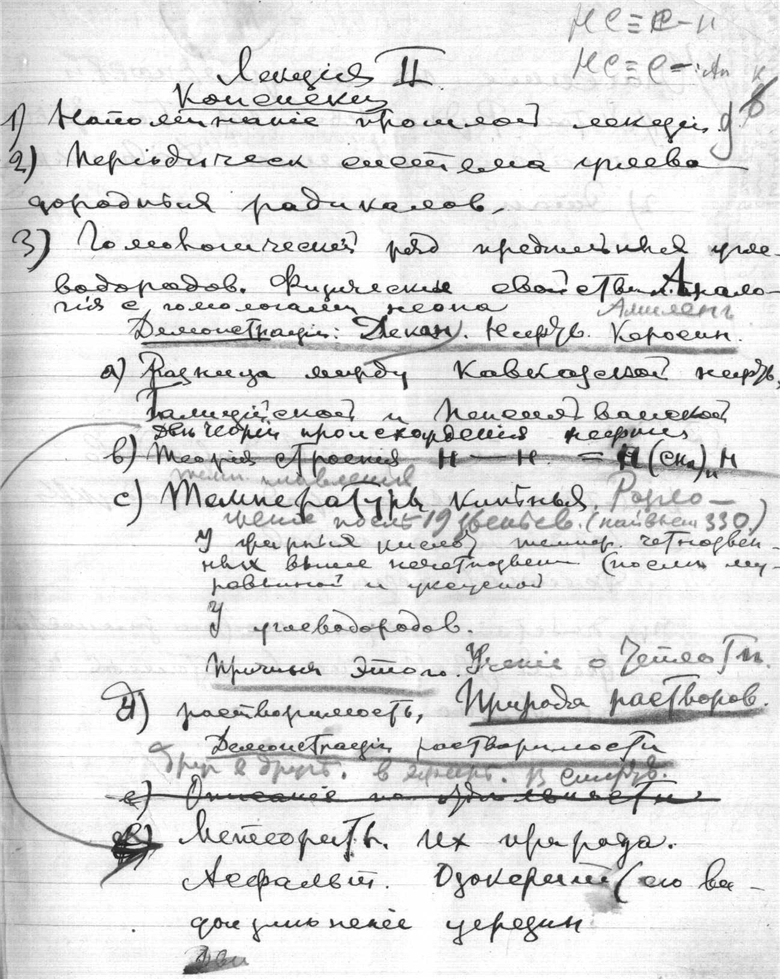 HC≡C-H
HC≡C-
Лекція II
Конспект
1) Напоминаніе прошлой лекціи.
2) Періодическ система углево-
дородныхъ радикаловъ.
3) Гомологическій ряд предѣльныхъ угле-
водородов. Физическія свойства. Анало-
гія с гомологами неона
Амиленъ
Демонстраціи: Декан. Нефть. Керосин.
а) Разница между Кавказской нефть,
Галиційской и Пенсильванской
Двѣ теоріи происхожденія нефти
в) Теорія строенія H — H = H(CH₂)ₙH
темп плавления
с) Температуры кипѣнья. Разло-
жение послѣ 19 звеньев. (найвысш 330.)
У жирныхъ кислотъ темпер. четнозвен-
ных выше нечетнозвен (послѣ му-
равьиной и уксусной
У углеводородов.
Причины этого. Ученіе о
d) растворимость, Природа растворов.
Демонстраціи растворимости
друг в другѣ. в эфирѣ. в спирту.
e) Описаніе по отдѣльности
Метеориты. Их природа.
Асфальт. Озокерит (его
церезин